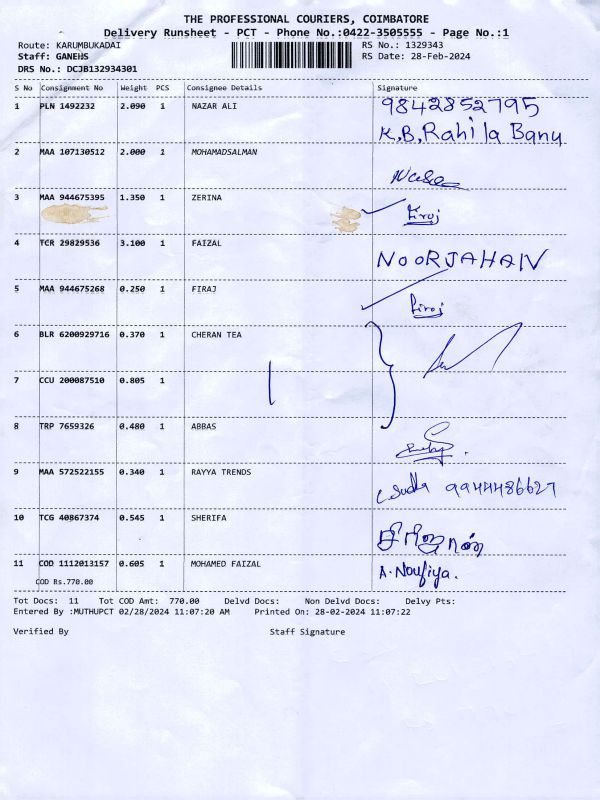 THE PROFESSIONAL COURIERS, COIMBATORE
Delivery Runsheet - PCT - Phone No.:0422-3505555 - Page No.:1
Route: KARUMBUKADAI RS No.: 1329343
Staff: GANEHS RS Date: 28-Feb-2024
DRS No.: DCJB132934301
S No Consignment No Weight PCS Consignee Details Signature
1 PLN 1492232 2.090 1 NAZAR ALI 9842852795
K.B.Rahila Banu
2 MAA 107130512 2.000 1 MOHAMADSALMAN
3 MAA 944675395 1.350 1 ZERINA Firoj
4 TCR 29829536 3.100 1 FAIZAL NOORJAHAN
5 MAA 944675268 0.250 1 FIRAJ Firoj
6 BLR 6200929716 0.370 1 CHERAN TEA
7 CCU 200087510 0.805 1
8 TRP 7659326 0.480 1 ABBAS
9 MAA 572522155 0.340 1 RAYYA TRENDS 9944486627
10 TCG 40867374 0.545 1 SHERIFA
11 COD 1112013157 0.605 1 MOHAMED FAIZAL A.Noufiya.
COD Rs.770.00
Tot Docs: 11 Tot COD Amt: 770.00 Delvd Docs: Non Delvd Docs: Delvy Pts:
Entered By :MUTHUPCT 02/28/2024 11:07:20 AM Printed On: 28-02-2024 11:07:22
Verified By Staff Signature